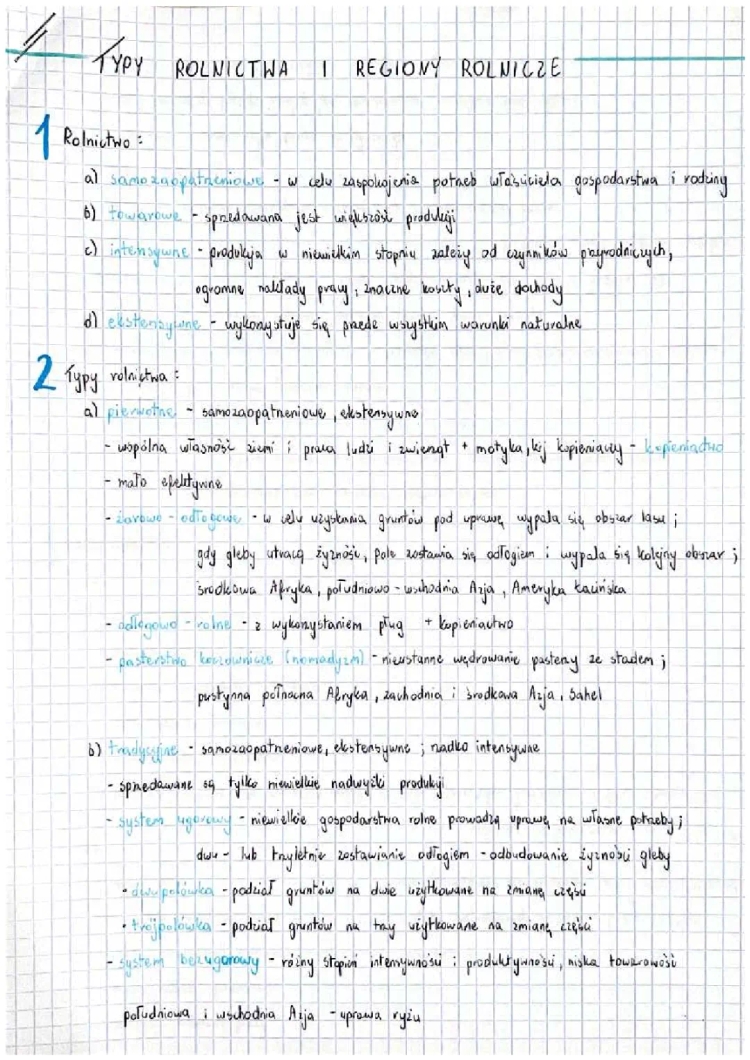 TYPY ROLNICTWA I REGIONY ROLNICZE
1 Rolnictwo:
a) samozaopatrzeniowe - w celu zaspokojenia potrzeb właściciela gospodarstwa i rodziny
b) towarowe - sprzedawana jest większość produkcji
c) intensywne - produkcja w niewielkim stopniu zależy od czynników przyrodniczych,
ogromne nakłady pracy, znaczne koszty, duże dochody
d) ekstensywne - wykorzystuje się przede wszystkim warunki naturalne
2 Typy rolnictwa:
a) pierwotne - samozaopatrzeniowe, ekstensywne
- wspólna własność ziemi i praca ludzi i zwierząt + motyka, kij kopieniaczy - kopieniactwo
- mało efektywne
- żarowo-odłogowe - w celu uzyskania gruntów pod uprawę wypala się obszar lasu;
gdy gleby utracą żyzność, pole zostawia się odłogiem i wypala się kolejny obszar;
środkowa Afryka, południowo-wschodnia Azja, Ameryka Łacińska
- odłogowo-rolne - z wykorzystaniem pług + kopieniactwo
- pasterstwo koczownicze (nomadyzm) - nieustanne wędrowanie pasterzy ze stadem;
pustynna północna Afryka, zachodnia i środkowa Azja, Sahel
b) tradycyjne - samozaopatrzeniowe, ekstensywne; rzadko intensywne
- sprzedawane są tylko niewielkie nadwyżki produkcji
- system ugorowy - niewielkie gospodarstwa rolne prowadzą uprawę na własne potrzeby;
dwu- lub trzyletnie zostawianie odłogiem - odbudowanie żyzności gleby
• dwupolówka - podział gruntów na dwie użytkowane na zmianę części
• trójpolówka - podział gruntów na trzy użytkowane na zmianę części
- system bezugorowy - różny stopień intensywności i produktywności, niska towarowość
południowa i wschodnia Azja - uprawa ryżu